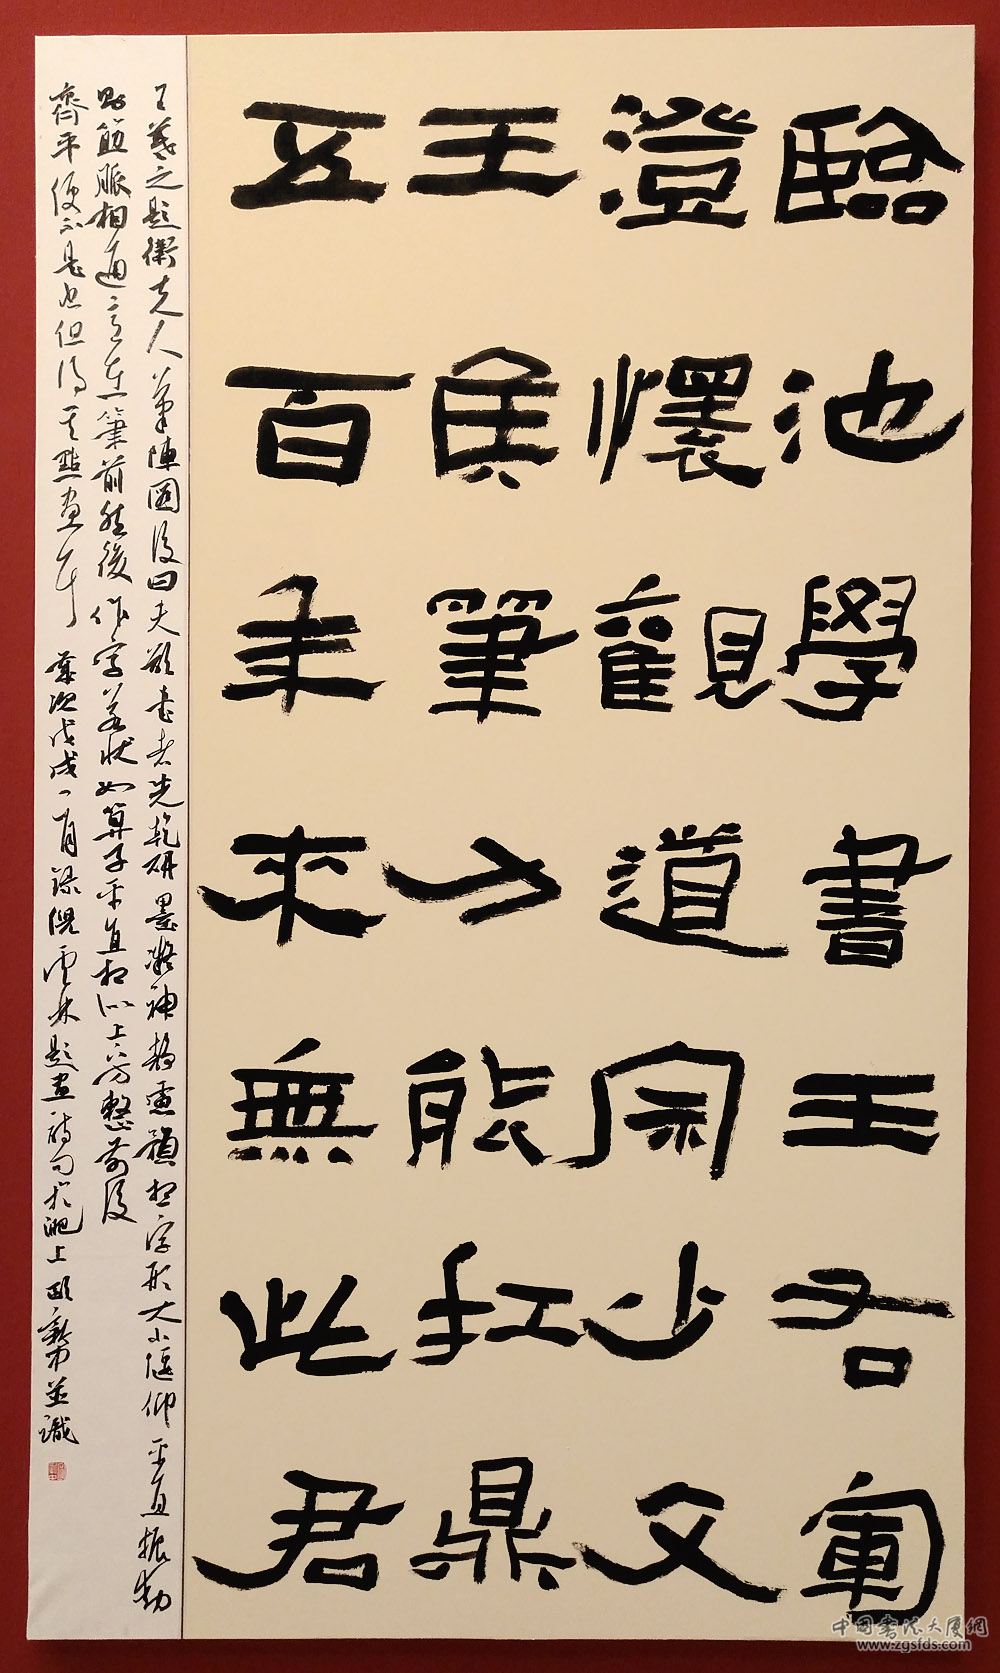 臨池學書王右軍
澄懷觀道宗少文
王侯筆力能扛鼎
五百年來無此君
王羲之題衛夫人筆陣圖後曰夫欲書者先乾研墨凝神靜慮預想字形大小偃仰平直振動
則筋脈相連意在筆前然後作字若狀如算子平直相似上下方整前後
齊平便不是書但得其點畫耳 歲次戊戌 月錄倪雲林題畫詩句於淝上 並識
中国书法大厦网
www.zgsfds.com